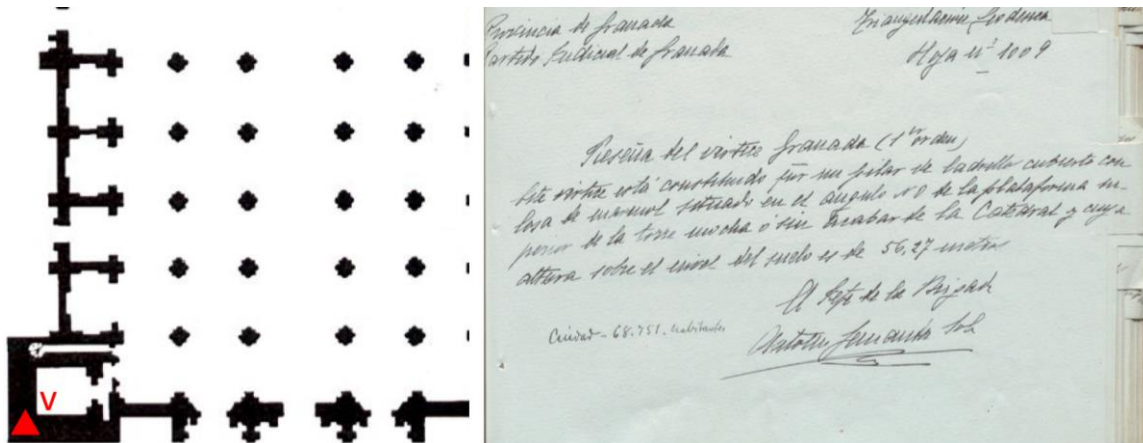 V
Provincia de Granada
Triangulación Geodésica
Partido Judicial de Granada
Hoja nº 1009
Reseña del vértice Granada (1er orden)
Este vértice está constituido por un pilar de ladrillo cubierto con
losa de marmol situado en el ángulo NO de la plataforma su-
perior de la torre mocha ó sin acabar de la Catedral y cuya
altura sobre el nivel del suelo es de 56,27 metros
El Jefe de la Brigada
Ciudad - 68.751. habitantes